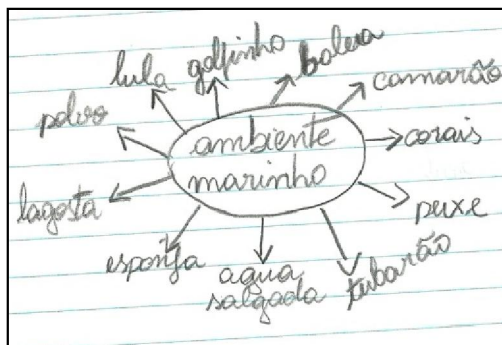 ambiente
marinho
lula
golfinho
baleia
camarão
corais
peixe
tubarão
agua
salgada
esponja
lagosta
polvo